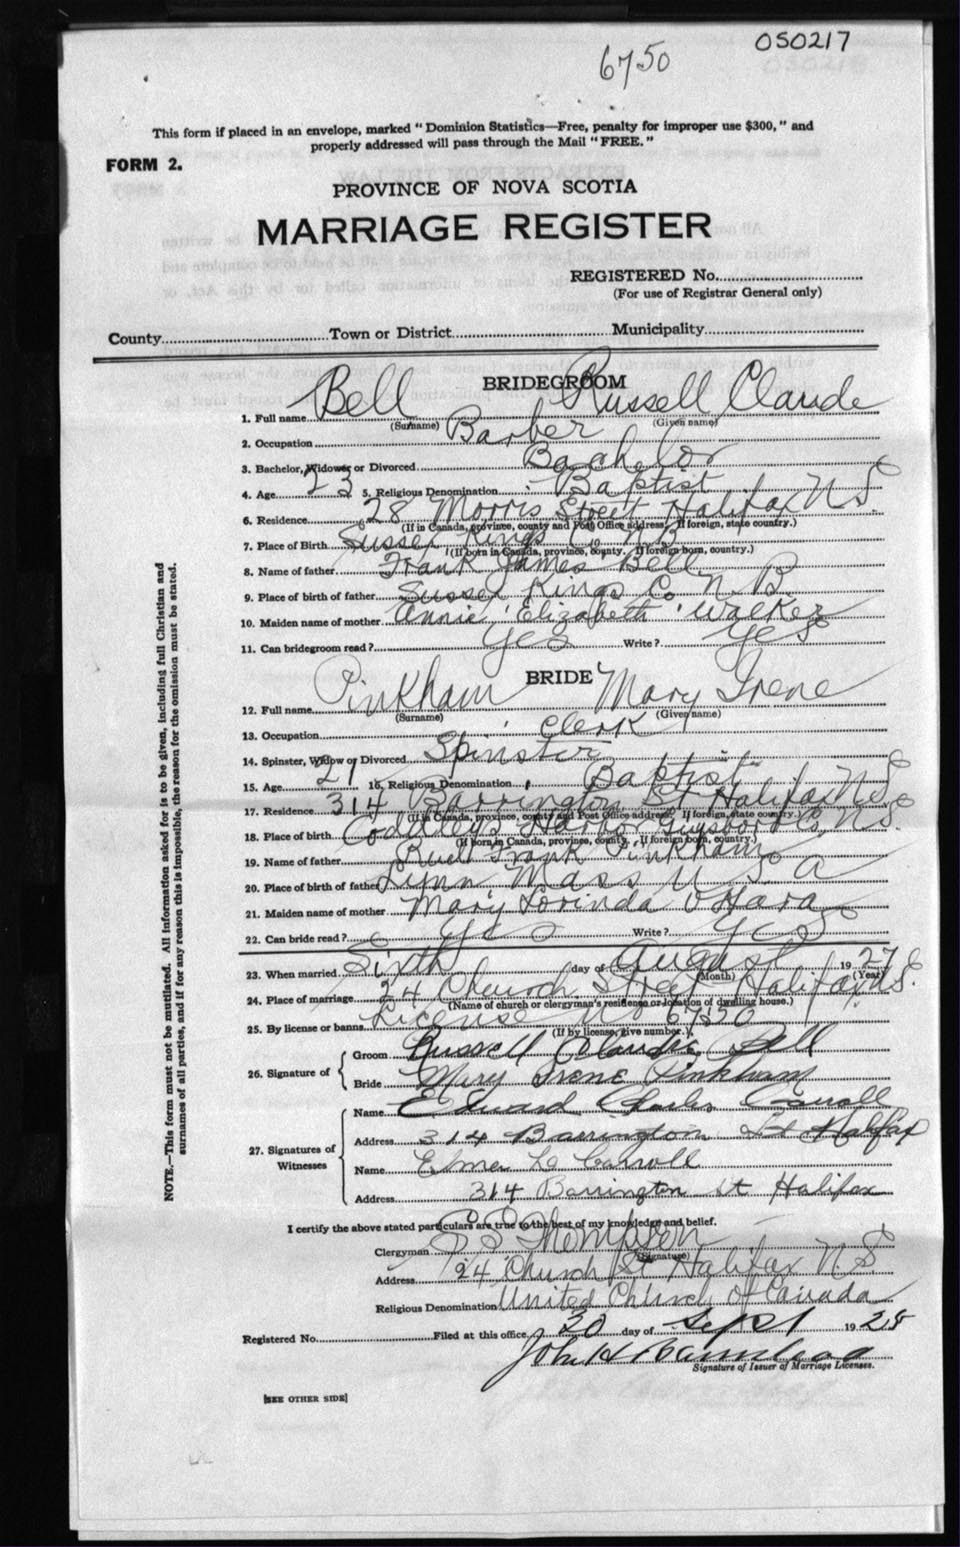 050217
6750
This form if placed in an envelope, marked "Dominion Statistics—Free, penalty for improper use $300," and
properly addressed will pass through the Mail "FREE."
FORM 2.
PROVINCE OF NOVA SCOTIA
MARRIAGE REGISTER
REGISTERED No.
(For use of Registrar General only)
County Town or District Municipality
BRIDEGROOM
1. Full name Bell Russell Claude
(Surname) (Given name)
2. Occupation Barber
3. Bachelor, Widower or Divorced Bachelor
4. Age 23 5. Religious Denomination Baptist
6. Residence 28 Morris Street Halifax N S.
(If in Canada, province, county and Post Office address. If foreign, state country.)
7. Place of Birth Sussex Kings Co N B
(If born in Canada, province, county. If foreign born, country.)
8. Name of father Frank James Bell
9. Place of birth of father Sussex Kings Co N B
10. Maiden name of mother Annie Elizabeth Walker
11. Can bridegroom read? Yes Write? Yes
BRIDE
12. Full name Pinkham Mary Irene
(Surname) (Given name)
13. Occupation Clerk
14. Spinster, Widow or Divorced Spinster
15. Age 21 16. Religious Denomination Baptist
17. Residence 314 Barrington St Halifax N S
(If in Canada, province, county and Post Office address. If foreign, state country.)
18. Place of birth Harbor Guysboro Co, N S.
(If born in Canada, province, county. If foreign born, country.)
19. Name of father Frank Pinkham
20. Place of birth of father Lynn Mass U S A
21. Maiden name of mother Mary Lorinda O'Hara
22. Can bride read? Yes Write? Yes
23. When married Sixth day of August 1927
(Month) (Year)
24. Place of marriage 24 Church Street Halifax N.S.
(Name of church or clergyman's residence or location of dwelling house.)
25. By license or banns License No 6750
(If by license, give number.)
26. Signature of Groom Russell Claude Bell
Bride Mary Irene Pinkham
27. Signatures of Witnesses
Name Edward Charles Carroll
Address 314 Barrington St Halifax
Name Carroll
Address 314 Barrington st Halifax
I certify the above stated particulars are true to the best of my knowledge and belief.
Clergyman Thompson
(Signature)
Address 24 Church St Halifax N.S.
Religious Denomination United Church of Canada
Registered No. Filed at this office 30 day of Sept 1928
John H
Signature of Issuer of Marriage Licenses.
[SEE OTHER SIDE]
NOTE.—This form must not be mutilated. All information asked for is to be given, including full Christian and
surnames of all parties, and if for any reason this is impossible, the reason for the omission must be stated.